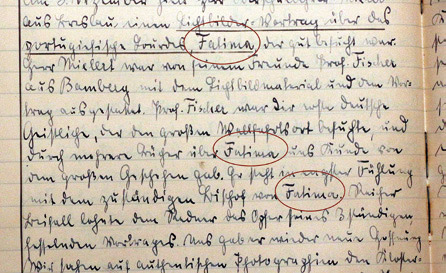 aus Breslau, einen Lichtbilder-Vortrag über das
portugiesische Lourdes, Fatima, der gut besucht war.
Herr Mielert war von seinem Freunde Prof. Fischer
aus Bamberg mit dem Lichtbildmaterial und dem Vor-
trag ausgestattet. Prof. Fischer war der erste deutsche
Geistliche, der den großen Wallfahrtsort besuchte, und
durch mehrere Bücher über Fatima uns Kunde von
dem großen Geschehen gab. Er steht in engster Fühlung
mit dem zuständigen Bischof von Fatima. Reicher
Beifall lohnte dem Redner das Opfer seines
Vortrages. Uns gab er wieder neue Hoffnung
Wir sahen auf authentischen Photographien den